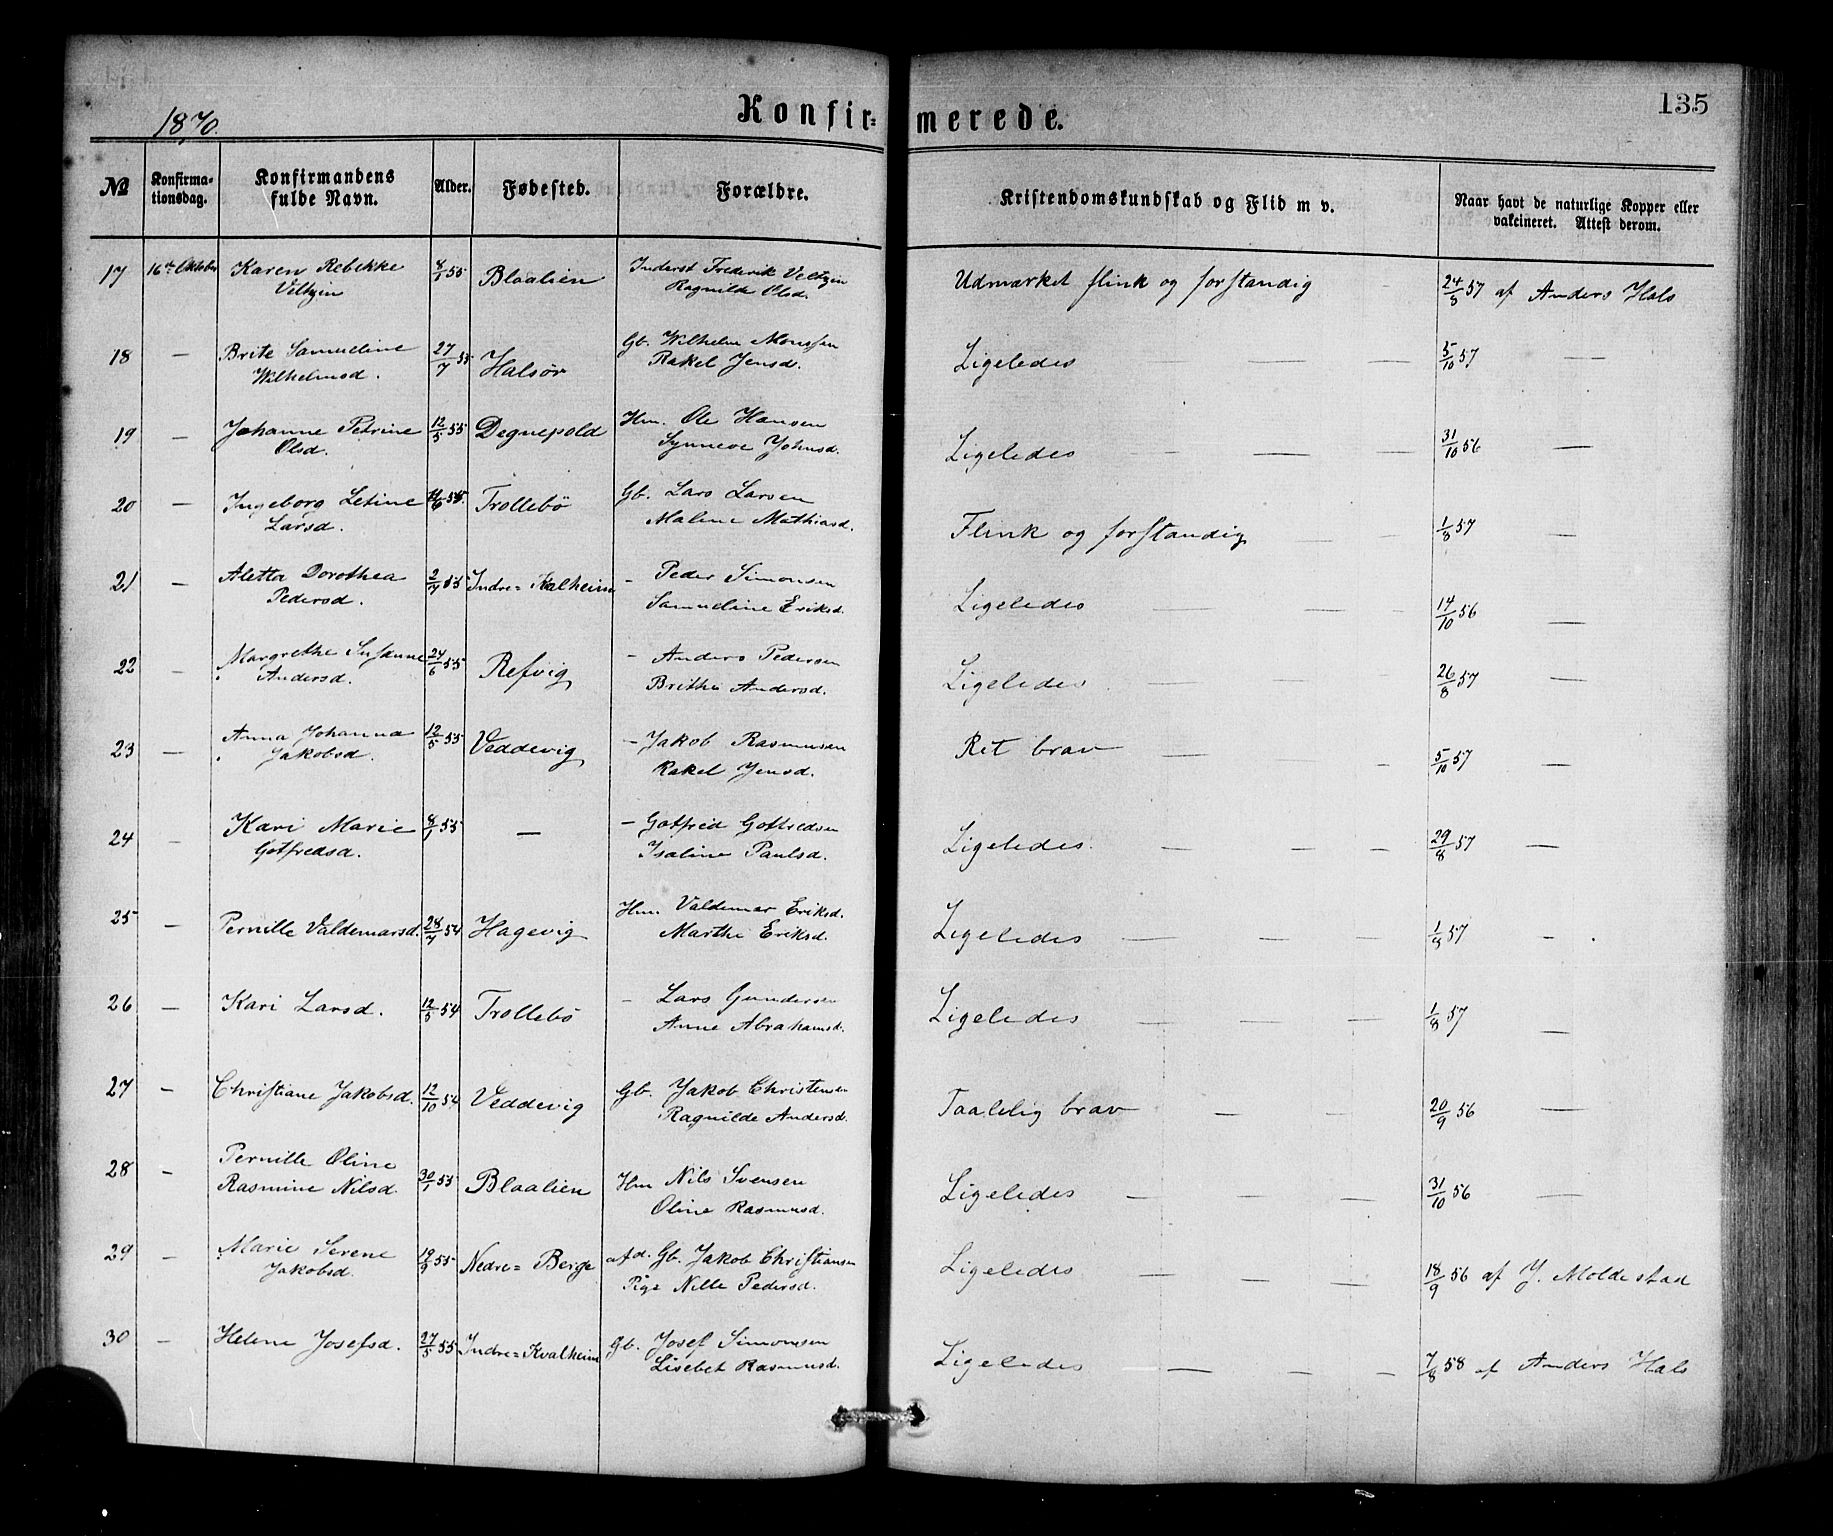 1870.
Konfir-
merede.
135
№
Konfirma-
tionsdag.
Konfirmandens
fulde Navn.
Alder.
Fødested.
Forældre.
Kristendomskundskab og Flid m v.
Naar havt de naturlige Kopper eller
vakcineret. Attest derom.
17 16de Oktober Karen Rebekke 8/1 55 Blaalien Inderst Frederik Veltzin Udmærket flink og forstandig 24/8 57 af Anders Hals
Veltzin Ragnilde Olsd.
18 — Brite Samueline 27/7 55 Halsør Gb. Wilhelm Monssen Ligeledes — — 5/10 57 —
Wilhelmsd. Rakel Jensd.
19 — Johanne Petrine 12/5 55 Degnepold Hm. Ole Hansen Ligeledes — — — 31/10 56 —
Olsd. Synneve Johnsd.
20 — Ingeborg Letine /6 55. Trollebø Gb. Lars Larsen Flink og forstandig — — 1/8 57 —
Larsd. Malene Mathiasd.
21 — Aletta Dorothea 2/7 55 Indre= Kvalheim — Peder Simonsen Ligeledes — — — 14/10 56 —
Pedersd. Samueline Eriksd.
22 — Margrethe Susanne 24/6 55 Refvig — Anders Pedersen Ligeledes — — — 26/8 57 —
Andersd. Brithe Andersd.
23 — Anna Johanna 12/5 55 Veddevig — Jakob Rasmusen Ret brav — — — 5/10 57 —
Jakobsd. Rakel Jensd.
24 — Kari Marie 8/1 55 — — Gotfred Gotfredsen Ligeledes. — — — 29/8 57 —
Gotfredsd. Isaline Paulsd.
25 — Pernille Valdemarsd. 28/7 54 Hagevig Hm. Valdemar Eriksd. Ligeledes — — — 1/8 57 —
Marthe Eriksd.
26 — Kari Larsd. 12/5 54 Trollebø — Lars Gundersen Ligeledes — — — 1/8 57 —
Anne Abrahamsd.
27 — Christiane Jakobsd. 12/10 54 Veddevig Gb. Jakob Christensen Taalelig brav — — 20/9 56 —
Ragnilde Andersd.
28 — Pernille Oline
Rasmine Nilsd. 30/1 55 Blaalien Hm Nils Svensen Ligeledes — — — 31/10 56 —
Oline Rasmusd.
29 — Marie Serene 19/9 55 Nedre= Berge afd. Gb. Jakob Christiansen Ligeledes — — — 18/9 56 af J. Moldestad
Jakobsd. Pige Nille Pedersd.
30 — Helene Josefsd. 27/5 55 Indre= Kvalheim Gb. Josef Simonsen Ligeledes — — — 7/8 58 af Anders Hals
Lisebet Rasmusd.